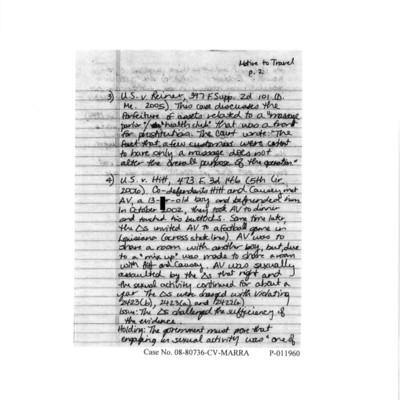 Motive to Travel
p. 2
3) U.S. v. Reiner, 397 F.Supp. 2d 101 (D.
Me. 2005). This case discusses the
forfeiture of assets related to a "massage
parlor/"health club" that was a front
for prostitution. The Court wrote: "The
fact that a few customers were content
to have only a massage does not
alter the overall purpose of the operation"
4) U.S. v. Hitt, 473 F.3d 146 (5th Cir.
2006). Co-defendants Hitt and Causey met
AV, a 13- -old boy and befriended him
In October 2002, they took AV to dinner
and touched his buttocks. Some time later,
the Δs invited AV to a football game in
Louisiana (across state lines). AV was to
share a room with another boy, but, due
to a "mix up" was made to share a room
with Hitt and Causey. AV was sexually
assaulted by the Δs that night and
the sexual activity continued for about a
year. The Δs were charged with violating
2423(b), 2423(a) and 2422(b)
Issue: The Δs challenged the sufficiency of
the evidence.
Holding: The government must prove that
engaging in sexual activity was "one of
Case No. 08-80736-CV-MARRA P-011960